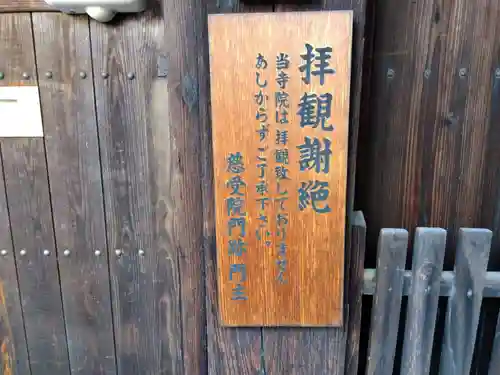 拝観謝絶
当寺院は拝観致しておりません
あしからずご了承下さい。
慈受院門跡門主